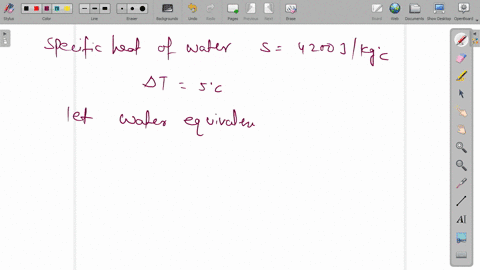 Stylus Color Line Eraser Backgrounds Undo Redo Pages Previous Next Erase Board Web Documents Show Desktop OpenBoard
Specific heat of water S = 4200 J/kg°C
ΔT = 5°C
let water equivalen